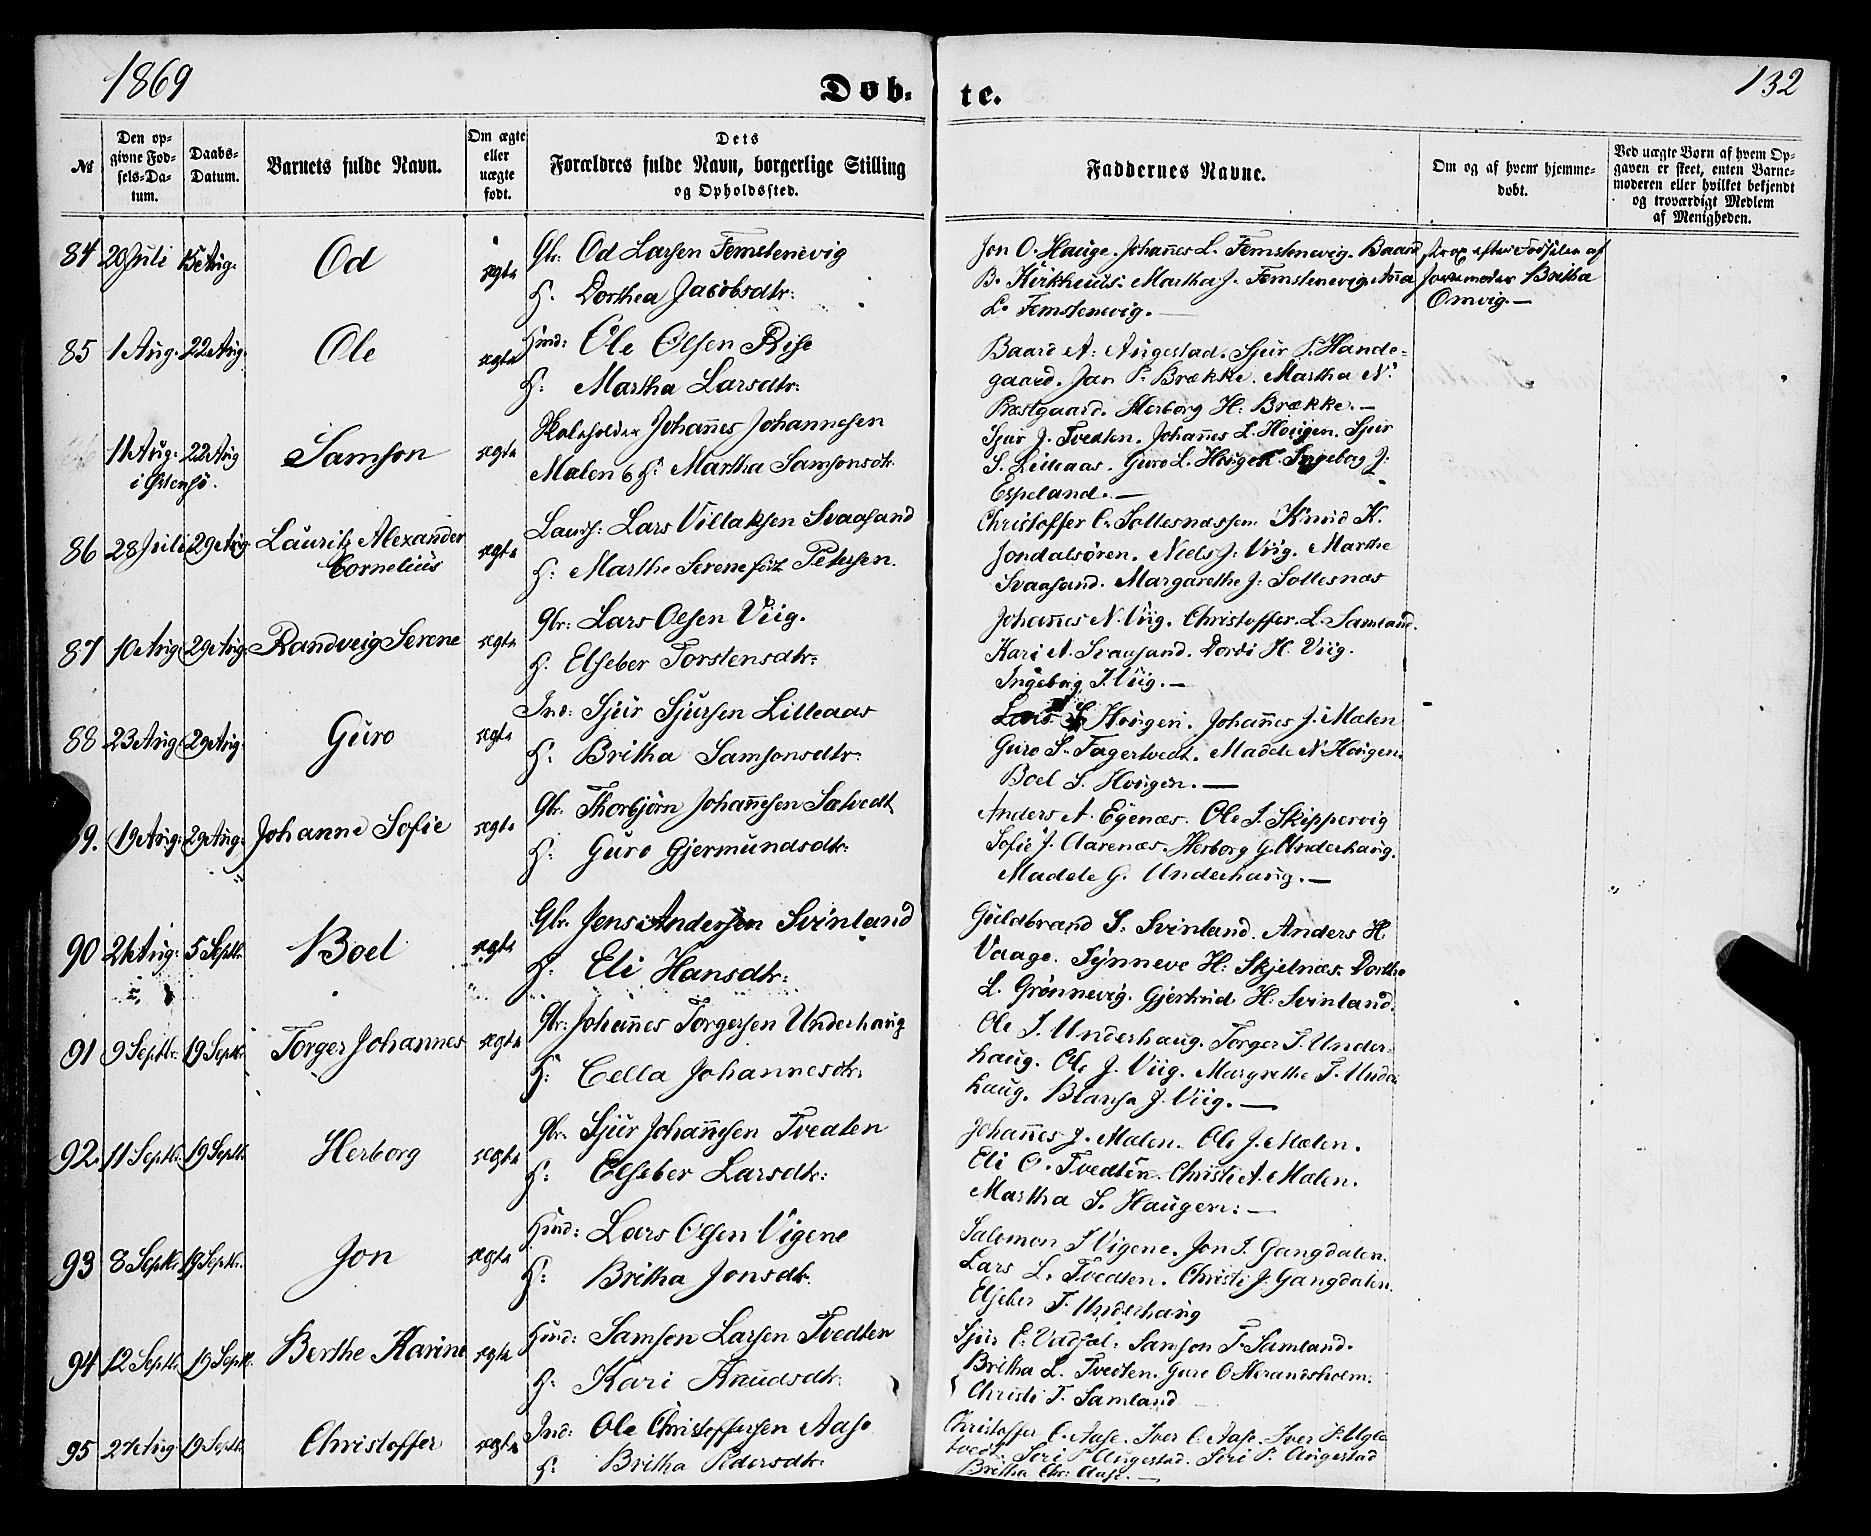 1869
132
Døb-
te.
№
Den op-
givne Fød-
sels-Da-
tum.
Daabs-
Datum.
Barnets fulde Navn.
Om ægte
eller
uægte
født.
Dets
Forældres fulde Navn, borgerlige Stilling
og Opholdssted.
Faddernes Navne.
Om og af hvem hjemme-
døbt.
Ved uægte Børn af hvem Op-
gaven er skeet, enten Barne-
moderen eller hvilket bekjendt
og troværdigt Medlem
af Menigheden.
84 20 Juli 15 Aug. Od ægte Gbr: Od Larsen Femstenevig
H: Dorthea Jacobsdtr:
Jon O. Hauge. Johañes L. Femstenevig. Baard
B. Kirkhuus. Martha J. Femstenevig. Anna
L. Femstenevig.
strax efter Fødselen af
Jordemoder Britha
Omvig. —
85 1 Aug. 22 Aug. Ole ægte Huusm: Ole Olsen Rise
H: Martha Larsdtr:
Baard A. Augestad. Sjur P. Hande-
gaard. Jan P. Brække. Martha N.
Prestgaard. Herborg H. Brække. —
11 Aug. 22 Aug i Østensø. Samson ægte Skoleholder Johañes Johannesen
Mælen & H: Martha Samsonsdtr.
Sjur J. Tvedten. Johañes L. Hougen. Sjur
S. Lilleaas. Guro L. Hougen. Ingeborg J.
Espeland. —
86 28 Juli 29 Aug Lauritz Alexander
Cornelius ægte Landh: Lars Villaksen Svaasand
H: Marthe Serene født Petersen.
Christoffer C. Sollesnæssen. Knud K.
Jondalsøren. Niels J. Viig. Marthe
Svaasand. Margarethe J. Sollesnæs
87 10 Aug 29 Aug. Randveig Serene ægte Gbr: Lars Olsen Viig.
H. Elseber Torstensdtr:
Johañes N. Viig. Christoffer L. Samland.
Kari N. Svaasand. Dordi H. Viig.
Ingeborg T. Viig. —
88 23 Aug 29 Aug. Guro ægte Ind: Sjur Sjursen Lilleaas
H. Britha Samsonsdtr:
Hougen. Johañes J. Mælen
Guro S. Fagertvedt. Madele N. Hougen.
Boel S. Hougen. —
89. 19 Aug. 29 Aug. Johanne Sofie ægte Gbr. Thorbjørn Johañesen Sætvedt
H: Guro Gjermundsdtr:
Anders A. Egenæs. Ole J. Skippervig
Sofie J. Aarenæs. Herborg G. Underhaug.
Madele G. Underhaug. —
90 24 Aug. 5 Septbr. Boel ægte Gbr. Jens Andersen Svinland
H: Eli Hansdtr:
Guldbrand S. Svinland. Anders H.
Vaage. Synneve H. Skjelnæs. Dorthe
L. Grønnevig. Gjertrud H. Svinland.
91 9 Septbr. 19 Septbr. Torger Johannes ægte Gbr: Johañes Torgersen Underhaug
H: Cella Johannesdtr.
Ole T. Underhaug. Torger T. Under-
haug. Ole J. Viig. Margrethe T. Under
haug. Blansa J. Viig. —
92. 11 Septb. 19 Septb. Herborg ægte Gbr. Sjur Johañesen Tvedten
H: Elseber Larsdtr:
Johañes J. Mælen. Ole J. Mælen.
Eli O. Tvedten. Christi A. Mælen.
Martha S. Haugen: —
93 8 Septbr. 19 Septbr. Jon ægte Huusm: Lars Olsen Vigene
H: Britha Jonsdtr:
Salemon J Vigene. Jon J. Gangdalen.
Lars L. Tvedten. Christi J. Gangdalen.
Elseber T. Underhaug
94 12 Septbr. 19 Septbr. Berthe Karine ægte Huusm: Samson Larsen Tvedten
H: Kari Knudsdtr:
Sjur E. Vadsel. Samson T. Samland.
Britha L. Tvedten. Guro O. Herandsholm:
Christi T. Samland
95 27 Aug. 19 Septb. Christoffer ægte Ind: Ole Christoffersen Aase
H: Britha Pedersdtr:
Christoffer C. Aase. Iver C. Aase. Iver P. Ugle
tvedt. Siri P. Augestad. Siri P. Augestad
Britha Chr: Aase. —